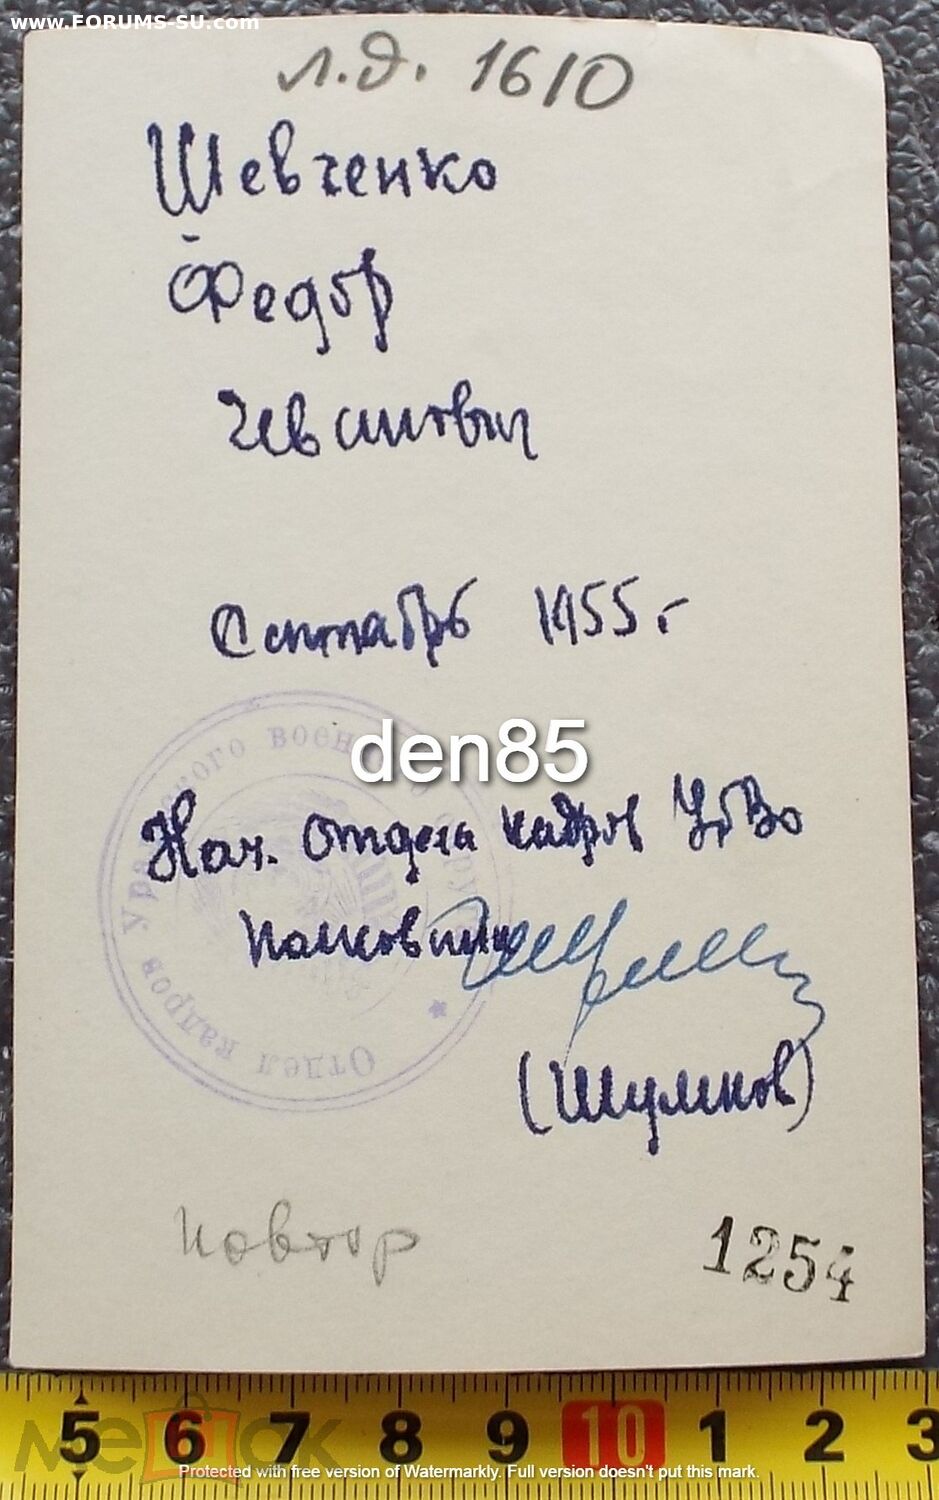 www.FORUMS-SU.com
л.д. 1610
Шевченко
Федор
Сентябрь 1955 г.
den85
Нач. отдела кадров УрВО
полковник
(Шумилов)
Отдел кадров Уральского военного округа
повтор
1254
5 6 7 8 9 10 1 2 3
мешок
Protected with free version of Watermarkly. Full version doesn't put this mark.